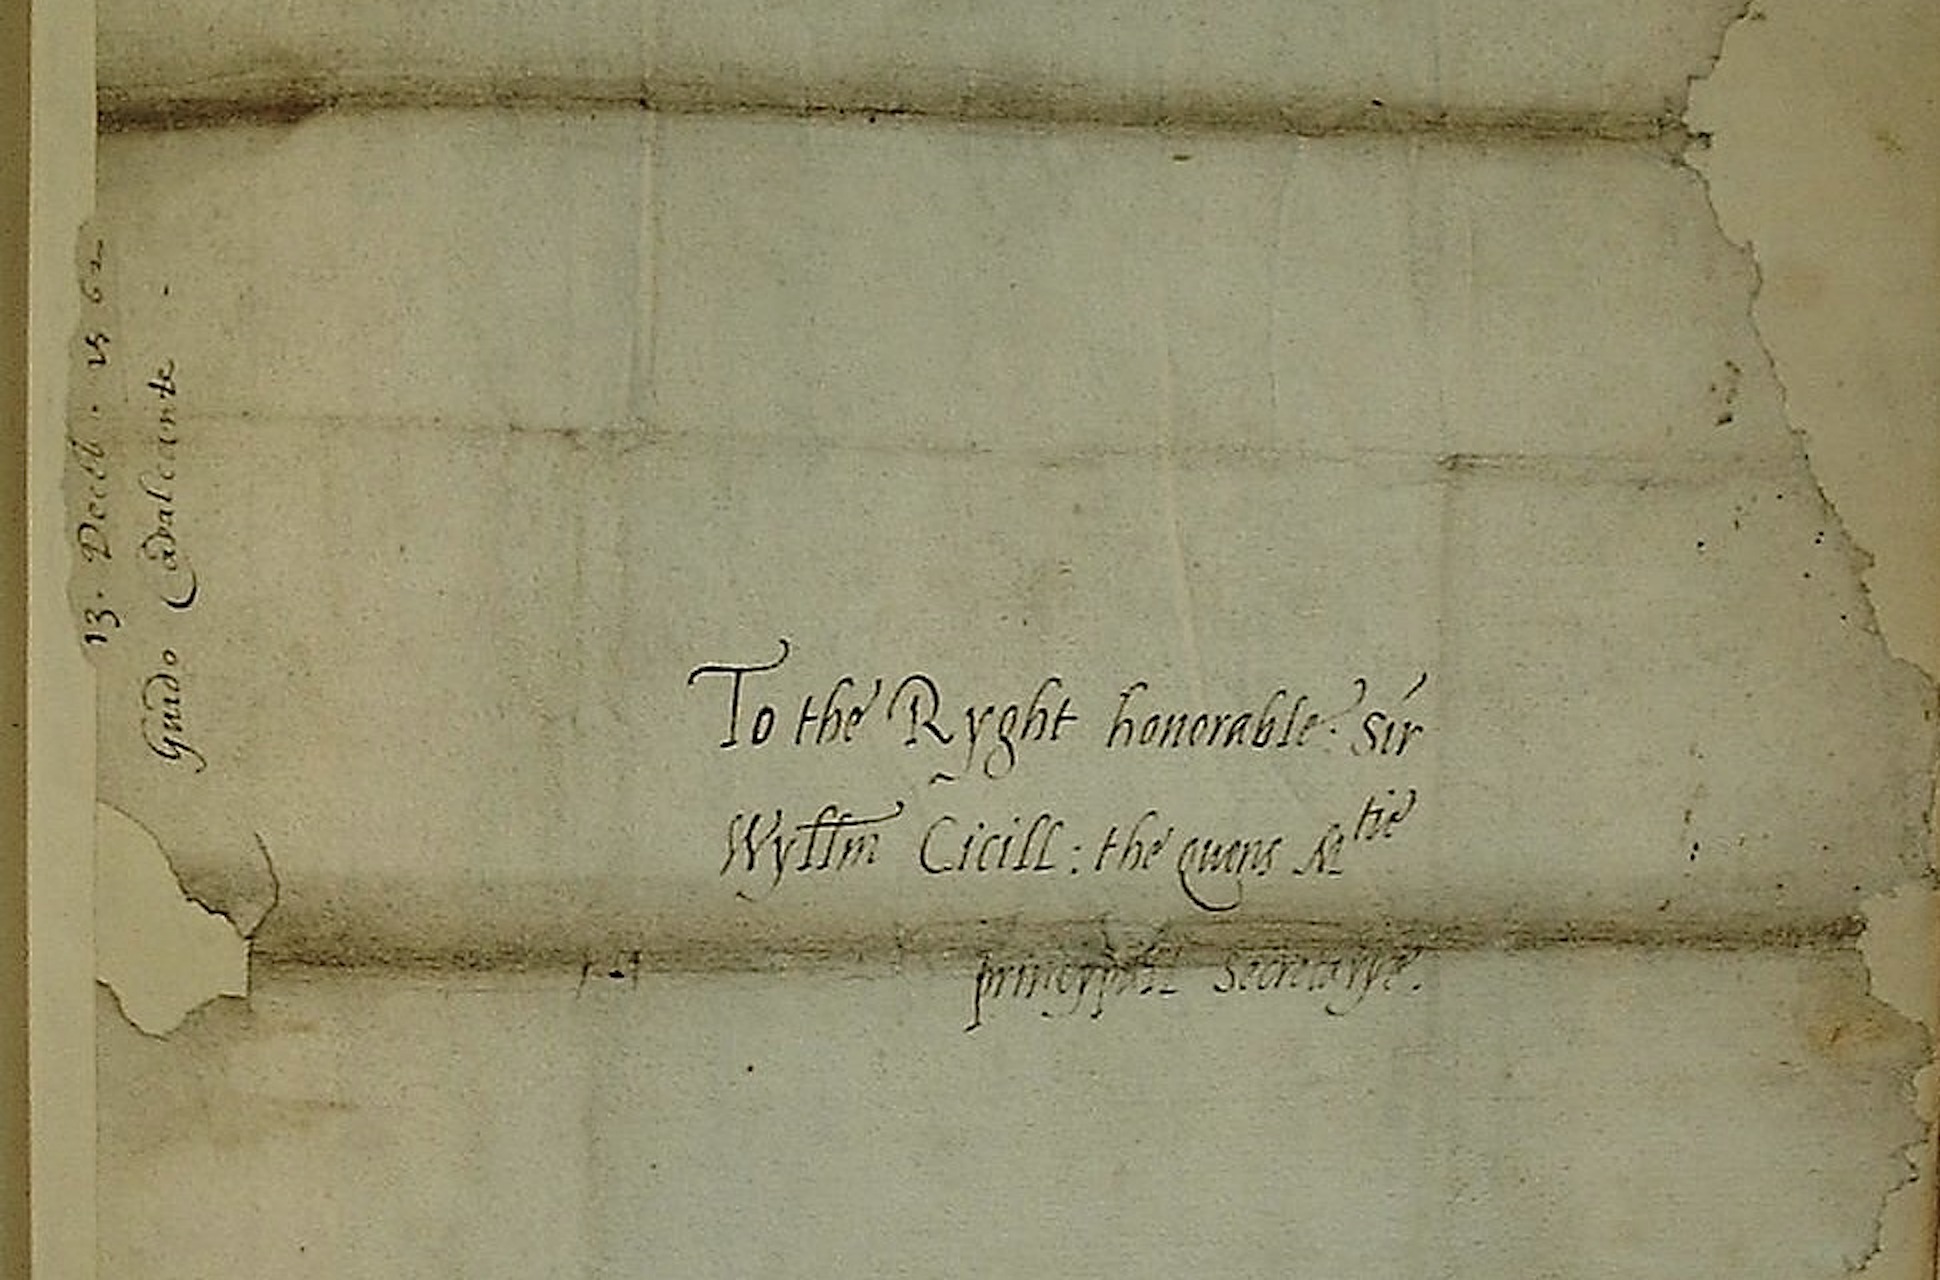 13. Decēb. 1562
Guido Caualcante -
To the Ryght honorable. sir
Wyllm Cicill: the quens Mtie
princypall Secretarye.